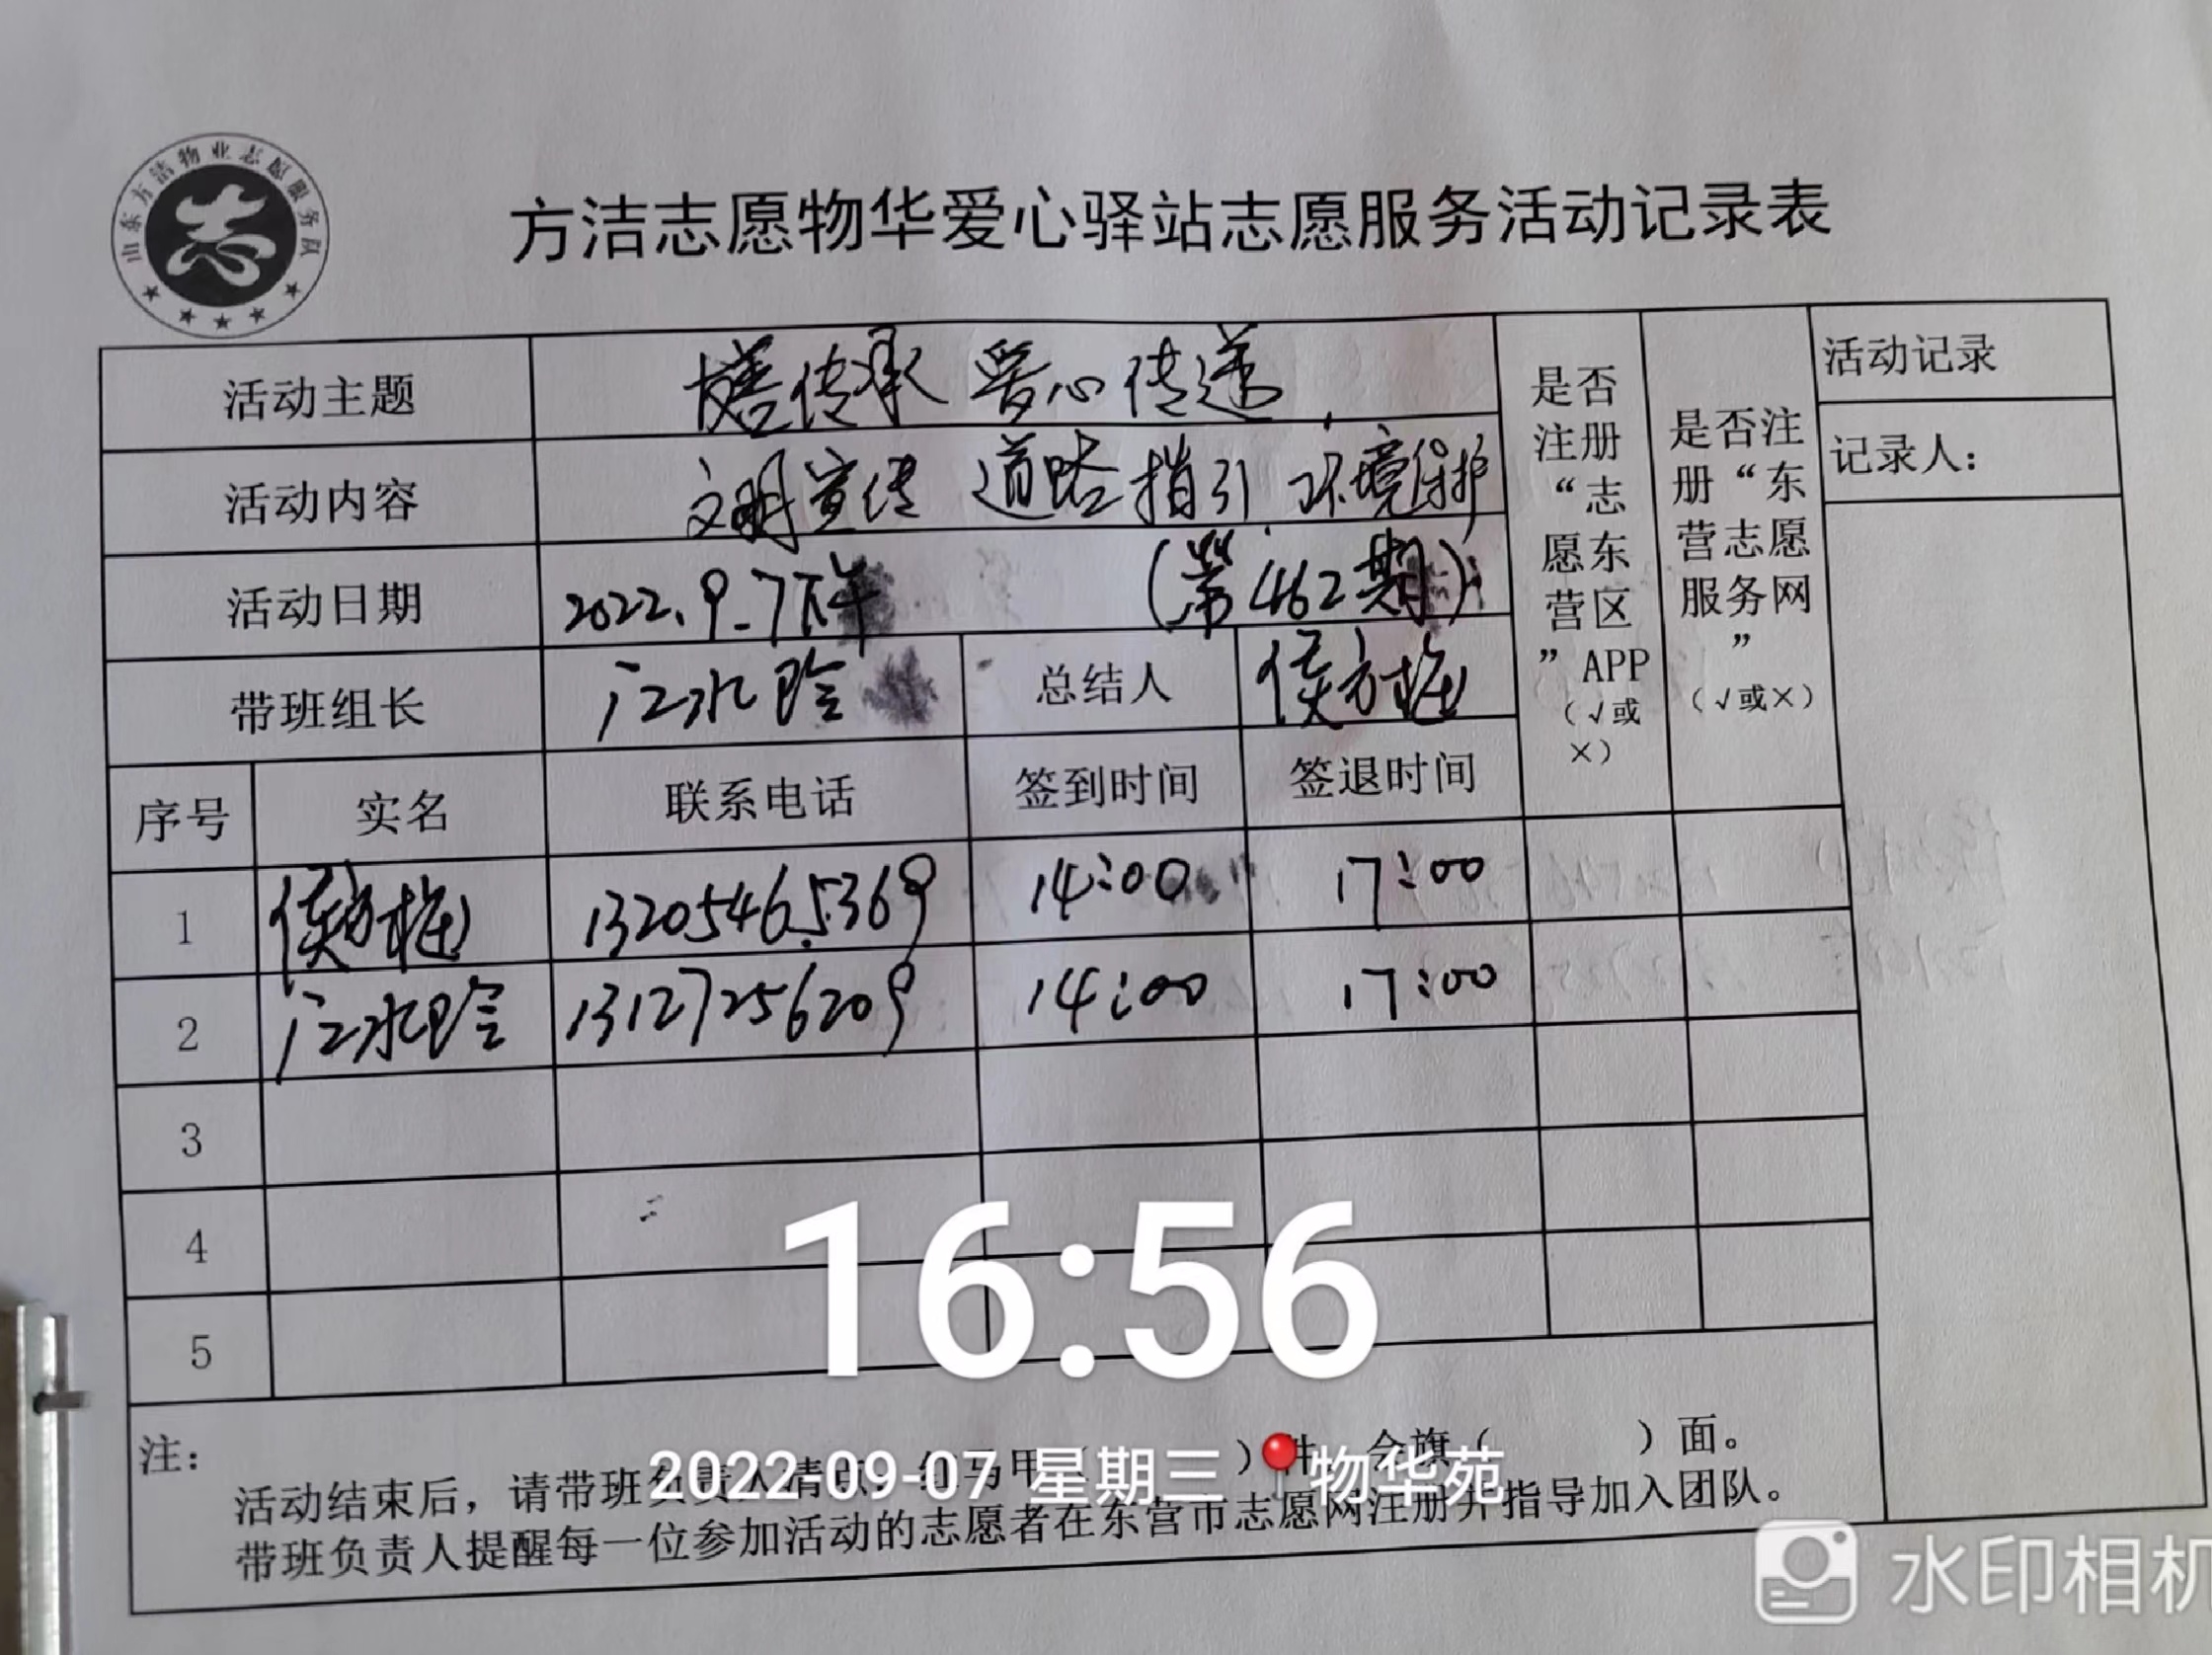 山东方洁物业志愿服务队
志
方洁志愿物华爱心驿站志愿服务活动记录表
活动主题 慈善传承 爱心传递
活动内容 文明宣传 道路指引 环境保护
活动日期 2022.9.7下午 (第462期)
带班组长 江水玲 总结人 侯方梅
是否注册“志愿东营区”APP(√或×)
是否注册“东营志愿服务网”(√或×)
活动记录
记录人:
序号 实名 联系电话 签到时间 签退时间
1 侯方梅 13205465369 14:00 17:00
2 江水玲 13127256209 14:00 17:00
3
4
5
注:
活动结束后，请带班负责人清点，红马甲( )件，会旗( )面。
带班负责人提醒每一位参加活动的志愿者在东营市志愿网注册并指导加入团队。
16:56
2022-09-07 星期三 物华苑
水印相机